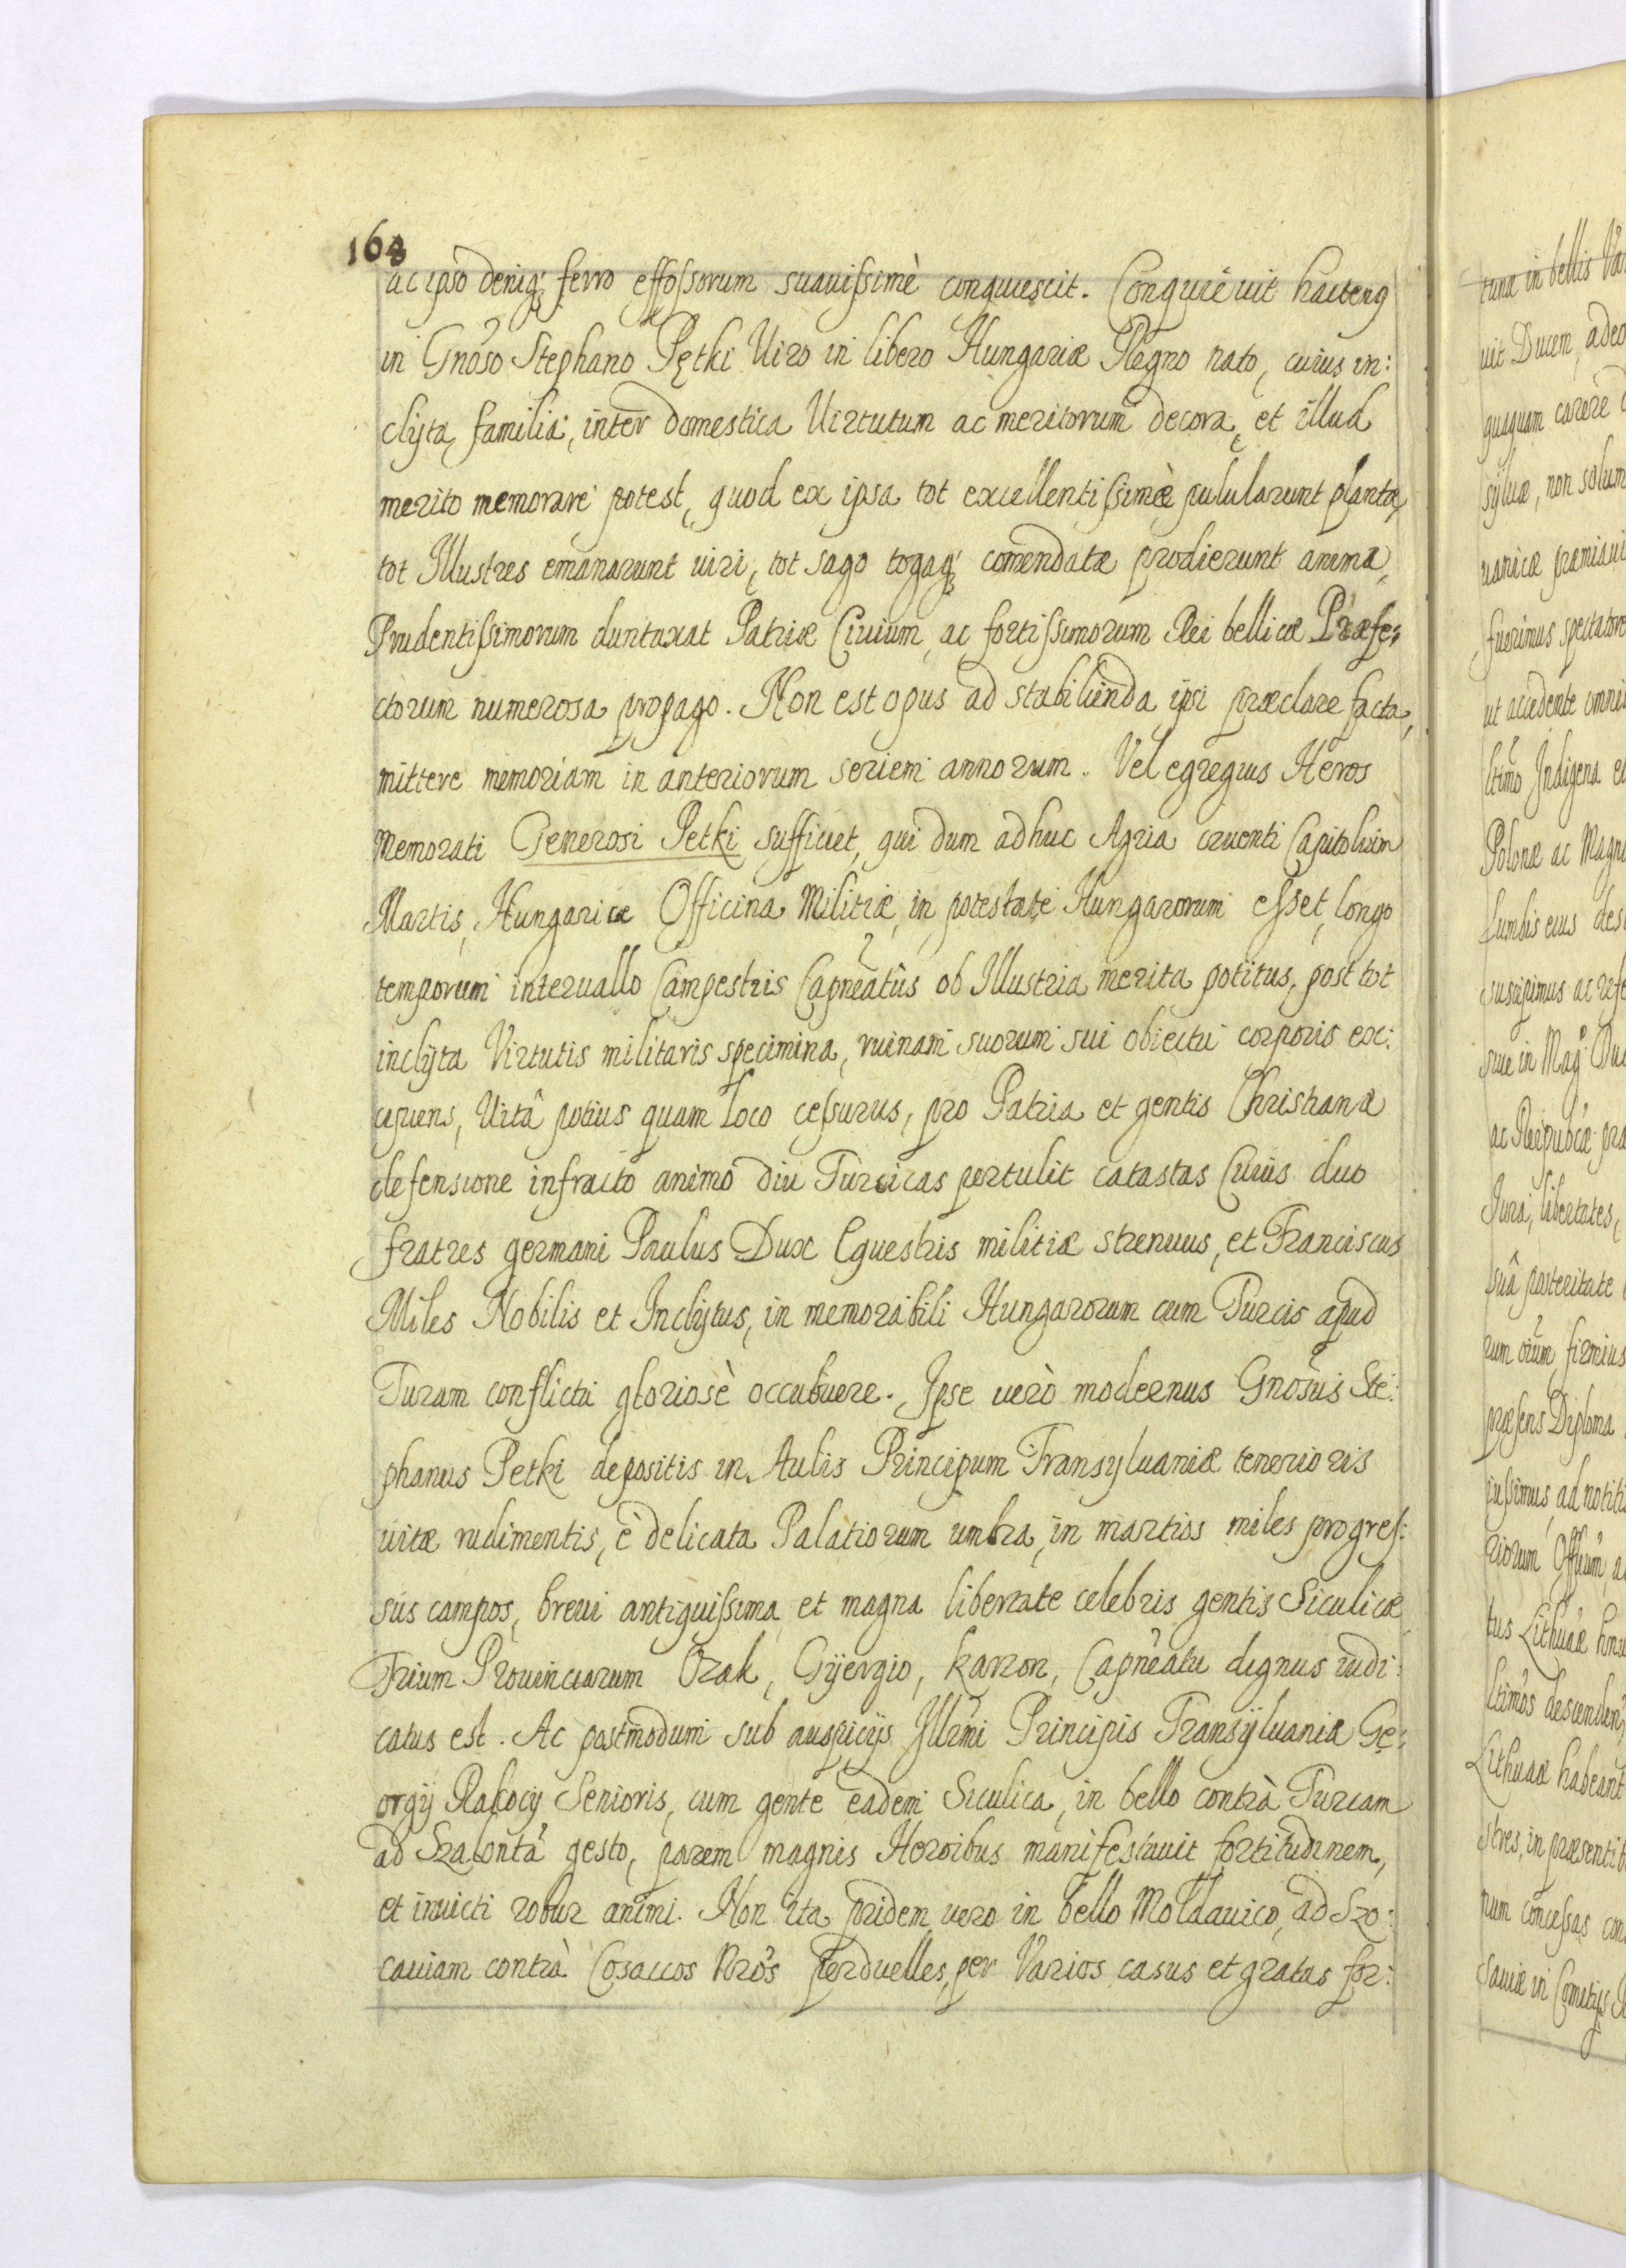 168
ac ipso deniq; ferro effossorum suauissimè conquiescit. Conquieuit hactenq
in Gnoso Stephano Petki Uiro in libero Hungariæ Regno nato, cuius in:
clyta familia, inter domestica Uirtutum ac meritorum decora, et illud
merito memorare potest, quod ex ipsa tot excellentissimæ pulularunt plantæ,
tot Illustres emanarunt uiri, tot sago togaq; comendatæ prodierunt animæ,
Prudentissimorum duntaxat Patriæ Ciuium, ac fortissimorum Rei bellicæ Præfe:
ctorum numerosa propago. Non est opus ad stabilienda ipsi præclare facta,
mittere memoriam in anteriorum seriem annorum. Vel egregius Heros
Memorati Generosi Petki sufficiet, qui dum adhuc Agria cruenti Capitolium
Martis, Hungaricæ Officina Militiæ, in potestate Hungarorum esset, longo
temporum interuallo Campestris Capneatûs ob Illustria merita potitus, post tot
inclyta Virtutis militaris specimina, ruinam suorum sui obiectu corporis ex:
cipiens, Uitâ potius quam loco cessurus, pro Patria et gentis Christianæ
defensione infracto animo diu Turcicas pertulit catastas Cuius duo
fratres germani Paulus Dux Equestris militiæ strenuus, et Franciscus
Miles Nobilis et Inclytus, in memorabili Hungarorum cum Turcis apud
Turam conflictu gloriosè occubuere. Ipse uerò modernus Gnosus Ste:
phanus Petki depositis in Aulis Principum Transyluaniæ tenerioris
uitæ rudimentis, è delicata Palatiorum umbra, in martios miles progres:
sus campos, breui antiquissima et magna libertate celebris gentis Siculicæ
Trium Prouinciarum Czak, Gyergio, Karzon, Capneatu dignus iudi:
catus est. Ac postmodum sub auspicijs Illrmi Principis Transyluaniæ Ge:
orgij Rakocy Senioris, cum gente eadem Siculica, in bello contrà Turcam
ad Szalonta gesto, parem magnis Heroibus manifestauit fortitudinem,
et inuicti robur animi. Non ita pridem uero in bello Moldauico, ad Szo:
cauiam contrà Cosaccos Nros Perduelles, per Varios casus et gratas for:
tuna in bellis
uit Ducem, adeo
quaquam carere
syluæ, non solum
fuerimus
ut accedente omni
ltimo Indigena
Polonæ ac Magni
lumbis eius
suscipimus ac
siue in Mag
Jura, libertates,
suâ posteritate
firmius
præsens Diploma
iussimus, ad
ltimos
Lithuaæ habeant
num concessas
sauiæ in Comitijs